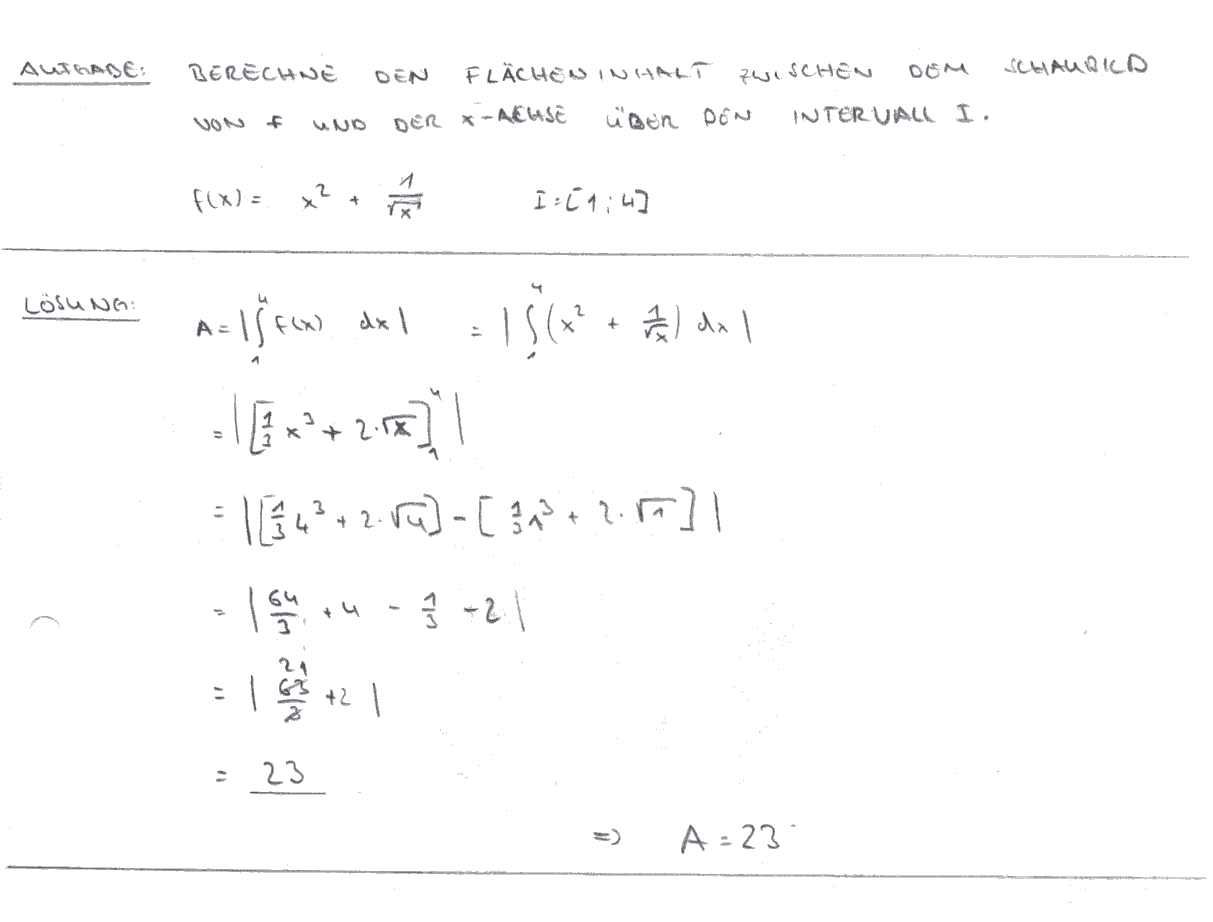 AUFGABE: BERECHNE DEN FLÄCHENINHALT ZWISCHEN DEM SCHAUBILD
VON f UND DER x-ACHSE ÜBER DEN INTERVALL I.
f(x) = x² + 1/√x I = [1; 4]
LÖSUNG: A = |∫₁⁴ f(x) dx| = |∫₁⁴ (x² + 1/√x) dx|
= |[1/3 x³ + 2·√x]₁⁴|
= |[1/3 4³ + 2·√4] - [1/3 1³ + 2·√1]|
= |64/3 + 4 - 1/3 - 2|
21
= |63/3 + 2|
= 23
=> A = 23